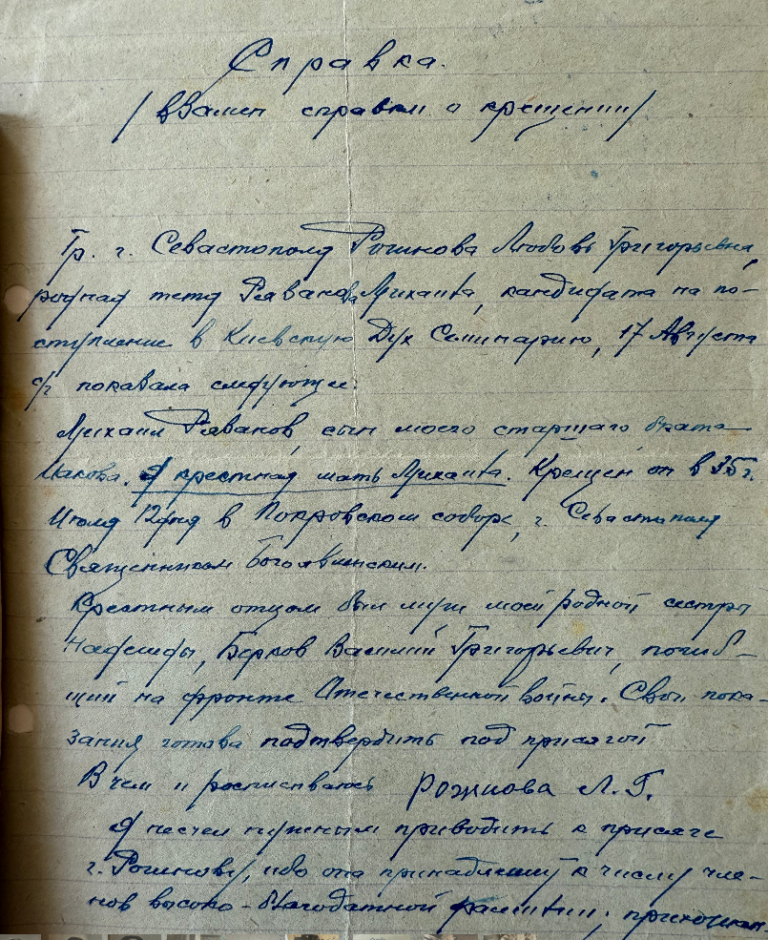 Справка.
/ вЗамен справки о крещении /
Гр. г. Севастополя Рожнова Любовь Григорьевна,
родная тетя Рябанова Михаила, кандидата на по-
ступление в Киевскую Дух Семинарию, 17 Августа
с/г показала следующее:
Михаил Рябанов, сын моего старшаго брата
Иакова. Я крестная мать Михаила. Крещен он в 35 г.
Июля 12 дня в Покровском соборе, г. Севастополя
Священником Богоявленским.
Крестным отцом был муж моей родной сестры
Надежды, Василий Григорьевич, погиб-
ший на фронте Отечественной войны. Свои пока-
зания готова подтвердить под присягой
В чем и расписываюсь Рожнова Л. Г.
Я не счел нужным приводить к присяге
г. Рожнову, ибо она принадлежит к числу чле-
нов высоко-благодатной фамилии,